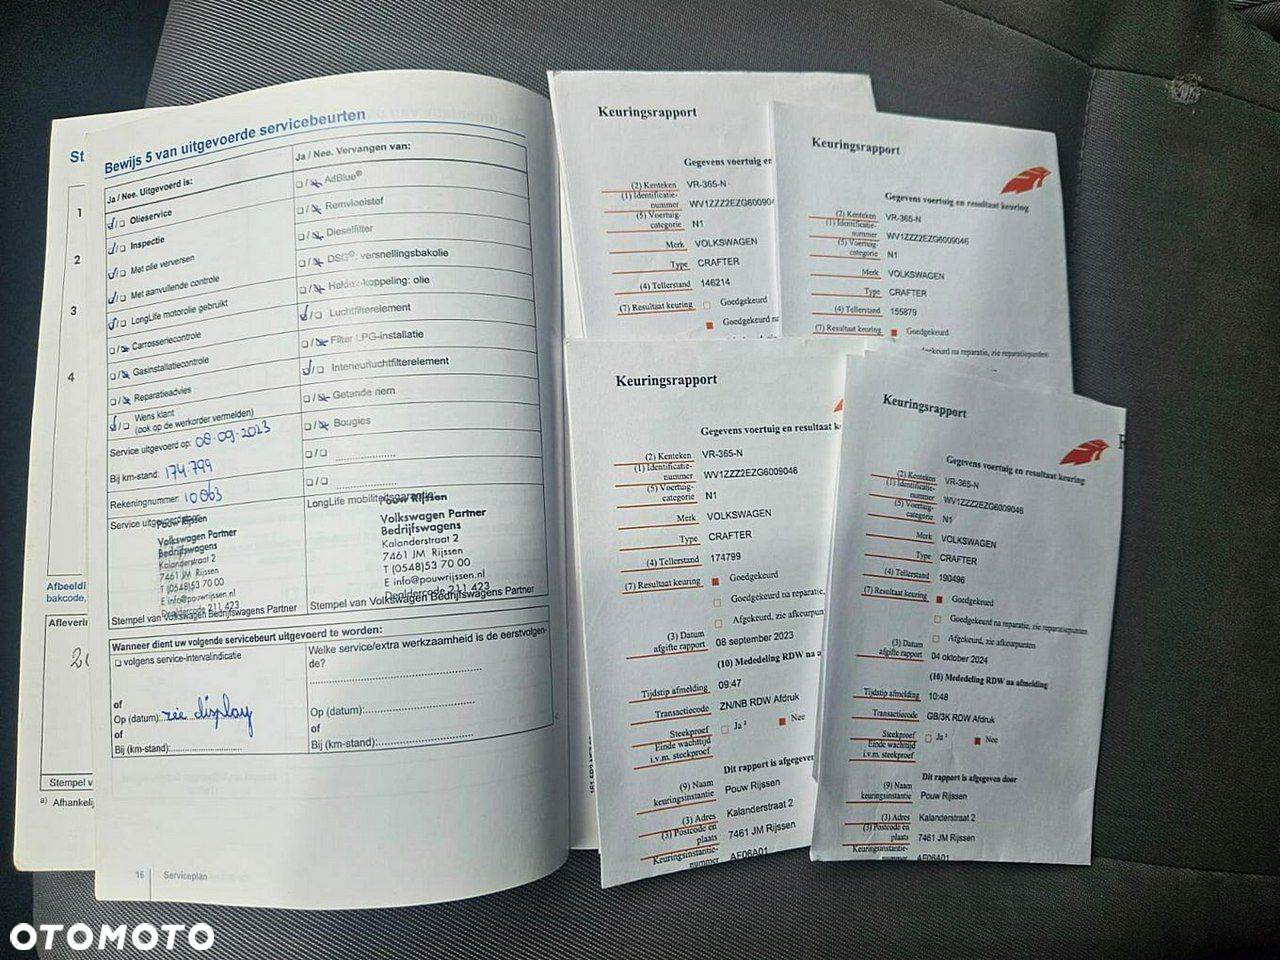 St
1
2
3
4
Aflevering
Stempel v
a) Afhankelij
Bewijs 5 van uitgevoerde servicebeurten
Ja / Nee. Uitgevoerd is:
Olieservice
Inspectie
Met olie verversen
Met aanvullende controle
LongLife motorolie gebruikt
Carrosseriecontrole
Gasinstallatiecontrole
Reparatieadvies
Wens klant
(ook op de werkorder vermelden)
Service uitgevoerd op: 08-09-2023
Bij km-stand: 174.799
Rekeningnummer: 10063
Pouw Rijssen
Volkswagen Partner
Bedrijfswagens
Kalanderstraat 2
7461 JM Rijssen
T (0548)53 70 00
E info@pouwrijssen.nl
Dealercode 211 423
Stempel van Volkswagen Bedrijfswagens Partner
Ja / Nee. Vervangen van:
AdBlue®
Remvloeistof
Dieselfilter
DSG®: versnellingsbakolie
Haldex-koppeling: olie
Luchtfilterelement
Filter LPG-installatie
Interieurluchtfilterelement
Getande riem
Bougies
LongLife mobiliteitsgarantie
Pouw Rijssen
Volkswagen Partner
Bedrijfswagens
Kalanderstraat 2
7461 JM Rijssen
T (0548)53 70 00
E info@pouwrijssen.nl
Dealercode 211 423
Stempel van Volkswagen Bedrijfswagens Partner
Wanneer dient uw volgende servicebeurt uitgevoerd te worden:
volgens service-intervalindicatie
of
Op (datum): zie display
of
Bij (km-stand):
Welke service/extra werkzaamheid is de eerstvolgen-
de?
Op (datum):
of
Bij (km-stand):
16 Serviceplan
Keuringsrapport
Gegevens voertuig en
(2) Kenteken VR-365-N
(1) Identificatie-
nummer WV1ZZZ2EZG600904
(5) Voertuig-
categorie N1
Merk VOLKSWAGEN
Type CRAFTER
(4) Tellerstand 146214
(7) Resultaat keuring Goedgekeurd
Goedgekeurd na
Keuringsrapport
Gegevens voertuig en resultaat keuring
(2) Kenteken VR-365-N
(1) Identificatie-
nummer WV1ZZZ2EZG6009046
(5) Voertuig-
categorie N1
Merk VOLKSWAGEN
Type CRAFTER
(4) Tellerstand 155879
(7) Resultaat keuring Goedgekeurd
gekeurd na reparatie, zie reparatiepunten
Keuringsrapport
Gegevens voertuig en resultaat k
(2) Kenteken VR-365-N
(1) Identificatie-
nummer WV1ZZZ2EZG6009046
(5) Voertuig-
categorie N1
Merk VOLKSWAGEN
Type CRAFTER
(4) Tellerstand 174799
(7) Resultaat keuring Goedgekeurd
Goedgekeurd na reparatie,
Afgekeurd, zie afkeurpun
(3) Datum
afgifte rapport 08 september 2023
(10) Mededeling RDW na a
Tijdstip afmelding 09:47
Transactiecode ZN/NB RDW Afdruk
Steekproef Ja ² Nee
Einde wachttijd
i.v.m. steekproef
Dit rapport is afgegeven
(9) Naam
keuringsinstantie Pouw Rijssen
(3) Adres Kalanderstraat 2
(3) Postcode en
plaats 7461 JM Rijssen
Keuringsinstantie-
nummer AF06A01
Keuringsrapport
Gegevens voertuig en resultaat keuring
(2) Kenteken VR-365-N
(1) Identificatie-
nummer WV1ZZZ2EZG6009046
(5) Voertuig-
categorie N1
Merk VOLKSWAGEN
Type CRAFTER
(4) Tellerstand 190496
(7) Resultaat keuring Goedgekeurd
Goedgekeurd na reparatie, zie reparatiepunten
Afgekeurd, zie afkeurpunten
(3) Datum
afgifte rapport 04 oktober 2024
(10) Mededeling RDW na afmelding
Tijdstip afmelding 10:48
Transactiecode GB/3K RDW Afdruk
Steekproef Ja ² Nee
Einde wachttijd
i.v.m. steekproef
Dit rapport is afgegeven door
(9) Naam
keuringsinstantie Pouw Rijssen
(3) Adres Kalanderstraat 2
(3) Postcode en
plaats 7461 JM Rijssen
Keuringsinstantie-
nummer AF06A01
OTOMOTO